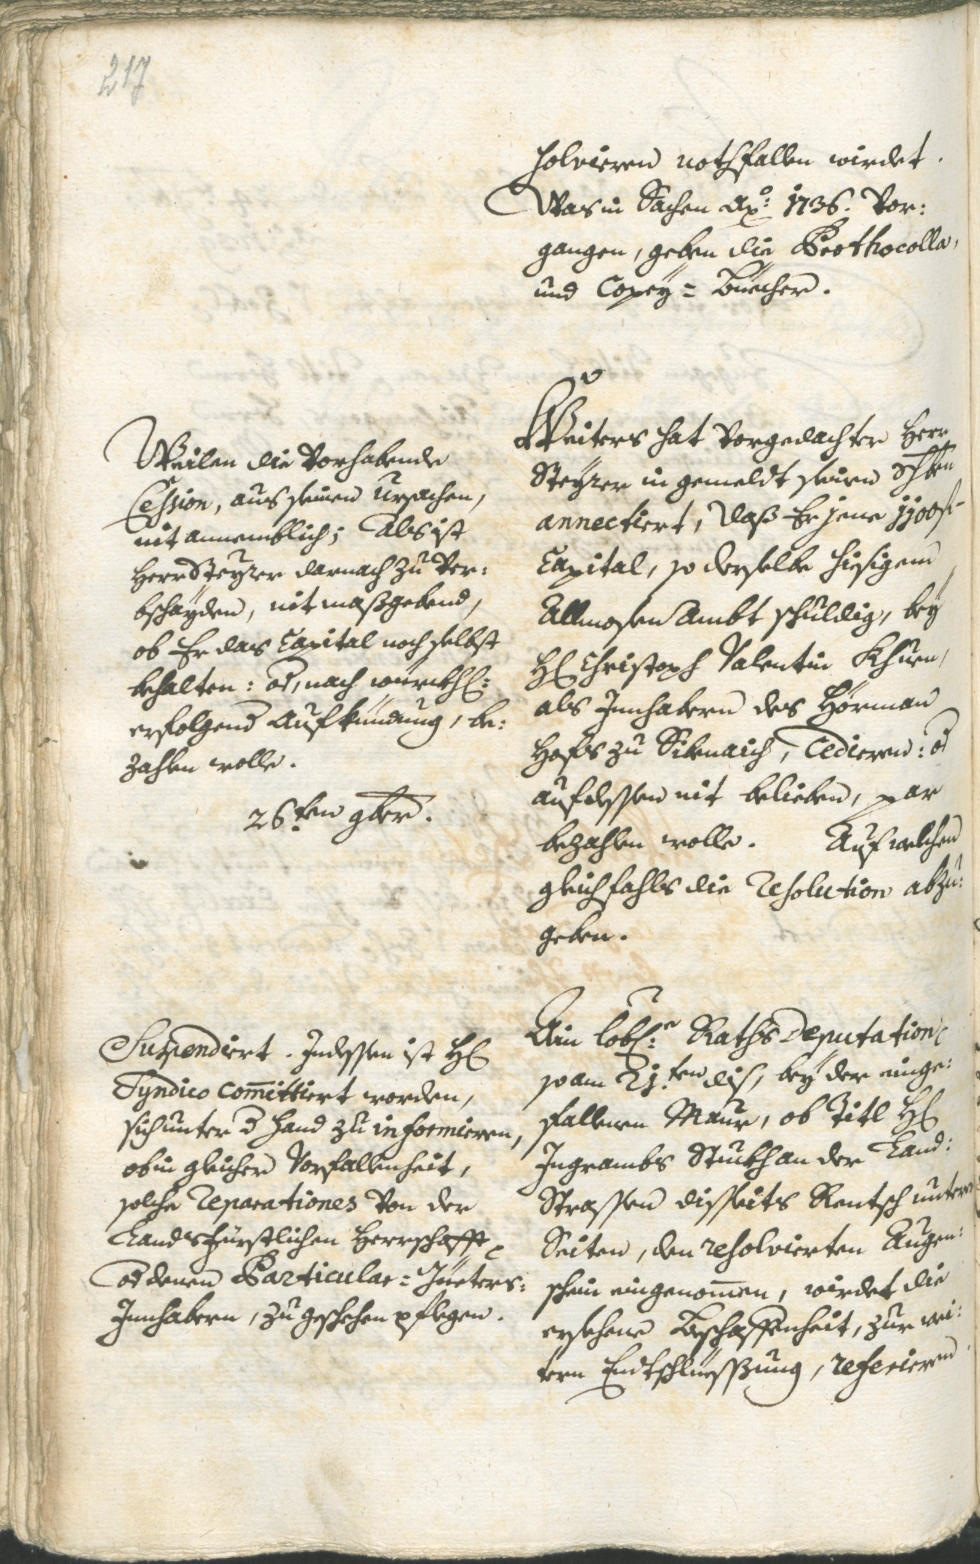 217
solvieren nothfallen wirdet.
Was in Sachen Aō: 1736. vor:
gangen, geben die Prothocolla,
und Copey = Büecher.
Weilen die vorhabende
Cession, aus seinen Ursachen,
nit annemblich; Als ist
Herr Steyrer darnach zu ver:
bschayden, nit maßgebend,
ob Er das Capital noch selbst
behalten: od, nach würckhl:
erfolgend Aufkündung, be:
zahlen wolle.
26ten 9ber.
Weiters hat vorgedachter Herr
Steyrer in gemeldt seinen
annectiert, daß Er jene 1100 f
Capital, so derselbe hiesigem
Allmosen Ambt schuldig, bey
H Christoph Valentin Khuen,
als Innhabern des Hörman
Hofs zu Sibenaich, cedieren: od
auf dessen nit belieben, par
bezahlen wolle. Auf welchen
gleichfahls die Resolution abzu:
geben.
Suspendiert. Indessen ist H
Syndico com̄ittiert worden,
sich unter d Hand zu informieren,
ob in gleicher Vorfallenheit,
solche Reparationes von der
Landsfürstlichen Herrschafft,
od denen Particular = Güeters:
Innhabern, zu geschehen pflegen.
Ain lobl: Raths Deputation,
so am 21.ten dis, bey der einge:
fallenen Maur, ob Titl H
Ingrambs Stuckh an der Land:
Strassen disseits Rentsch untern
Seiten, den resolvierten Augen:
schein eingenom̄en, wirdet die
ersehene Beschaffenheit, zur wei:
tern Entschlüessung, referieren.